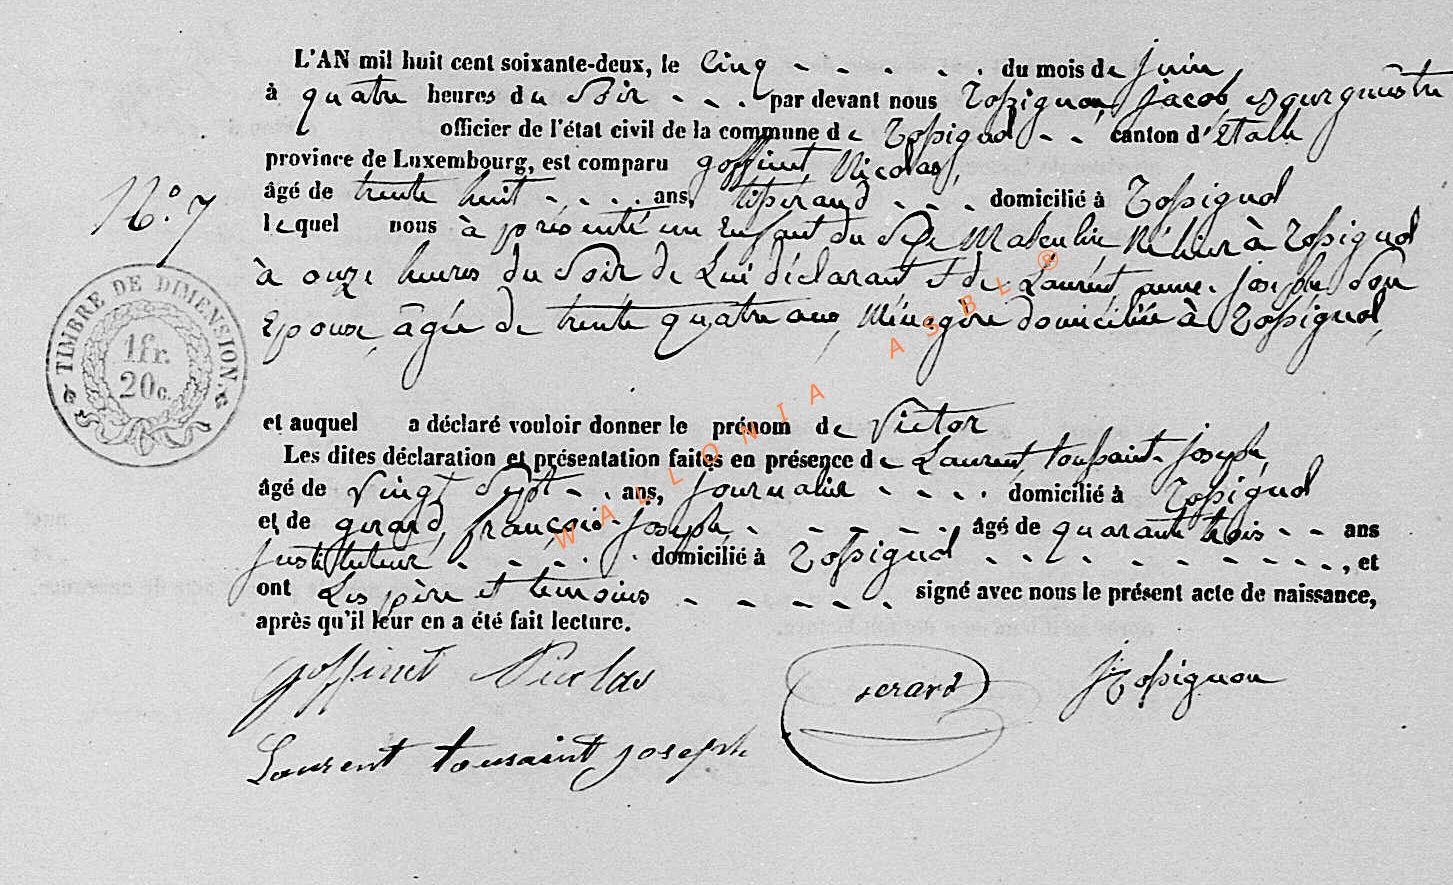 L'AN mil huit cent soixante-deux, le Cinq - - - - - - du mois de juin,
à quatre heures du Soir - - - par devant nous Rossignon, Jacob, Bourgmestre
officier de l'état civil de la commune de Rossignol - - canton d'Etalle
province de Luxembourg, est comparu goffinet, Nicolas,
N.° 7
âgé de trente huit - - - - ans, tisserand - - - domicilié à Rossignol
lequel nous à présenté un Enfant du Sexe Masculin, Né hier à Rossignol
à onze heures du Soir de Lui déclarant et de Laurent anne-Joseph Son
Epouse, âgée de trente quatre ans, Ménagère domiciliée à Rossignol,
TIMBRE DE DIMENSION.
1 fr.
20 c.
et auquel a déclaré vouloir donner le prénom de Victor
Les dites déclaration et présentation faites en présence de Laurent, toussaint-Joseph,
âgé de Vingt Sept - - ans, Journalier - - - - domicilié à Rossignol
et de gerard, françois-Joseph, - - - - - - âgé de quarante trois - - ans
Instituteur - - - - - domicilié à Rossignol - - - - - - - - - -, et
ont Les père et temoins - - - - - signé avec nous le présent acte de naissance,
après qu'il leur en a été fait lecture.
goffinet Nicolas
gerard
J Rossignon
Laurent toussaint joseph
WALLONIA ASBL ®